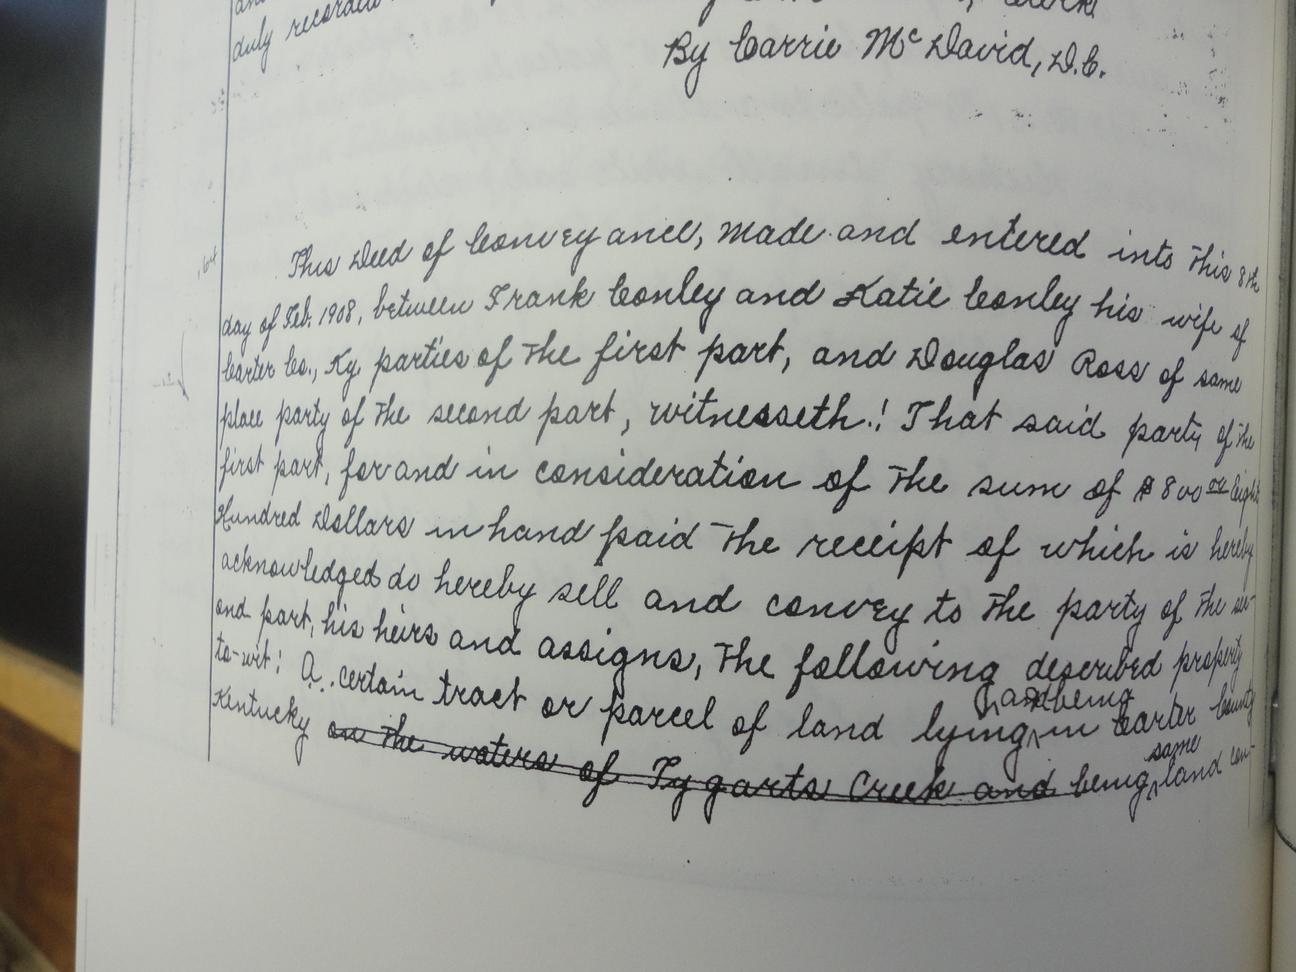 duly recorded
By Carrie McDavid, D.C.
This Deed of Conveyance, made and entered into this 8th
day of Feb. 1908, between Frank Conley and Katie Conley his wife of
Carter Co., Ky. parties of the first part, and Douglas Ross of same
place party of the second part, witnesseth.! That said party of the
first part, for and in consideration of the sum of $800 00 Eight
Hundred Dollars in hand paid the receipt of which is hereby
acknowledged do hereby sell and convey to the party of the sec-
ond part, his heirs and assigns, the following described property
to-wit: A certain tract or parcel of land lying and being in Carter County
Kentucky on the waters of Tygarts Creek and being same land con-